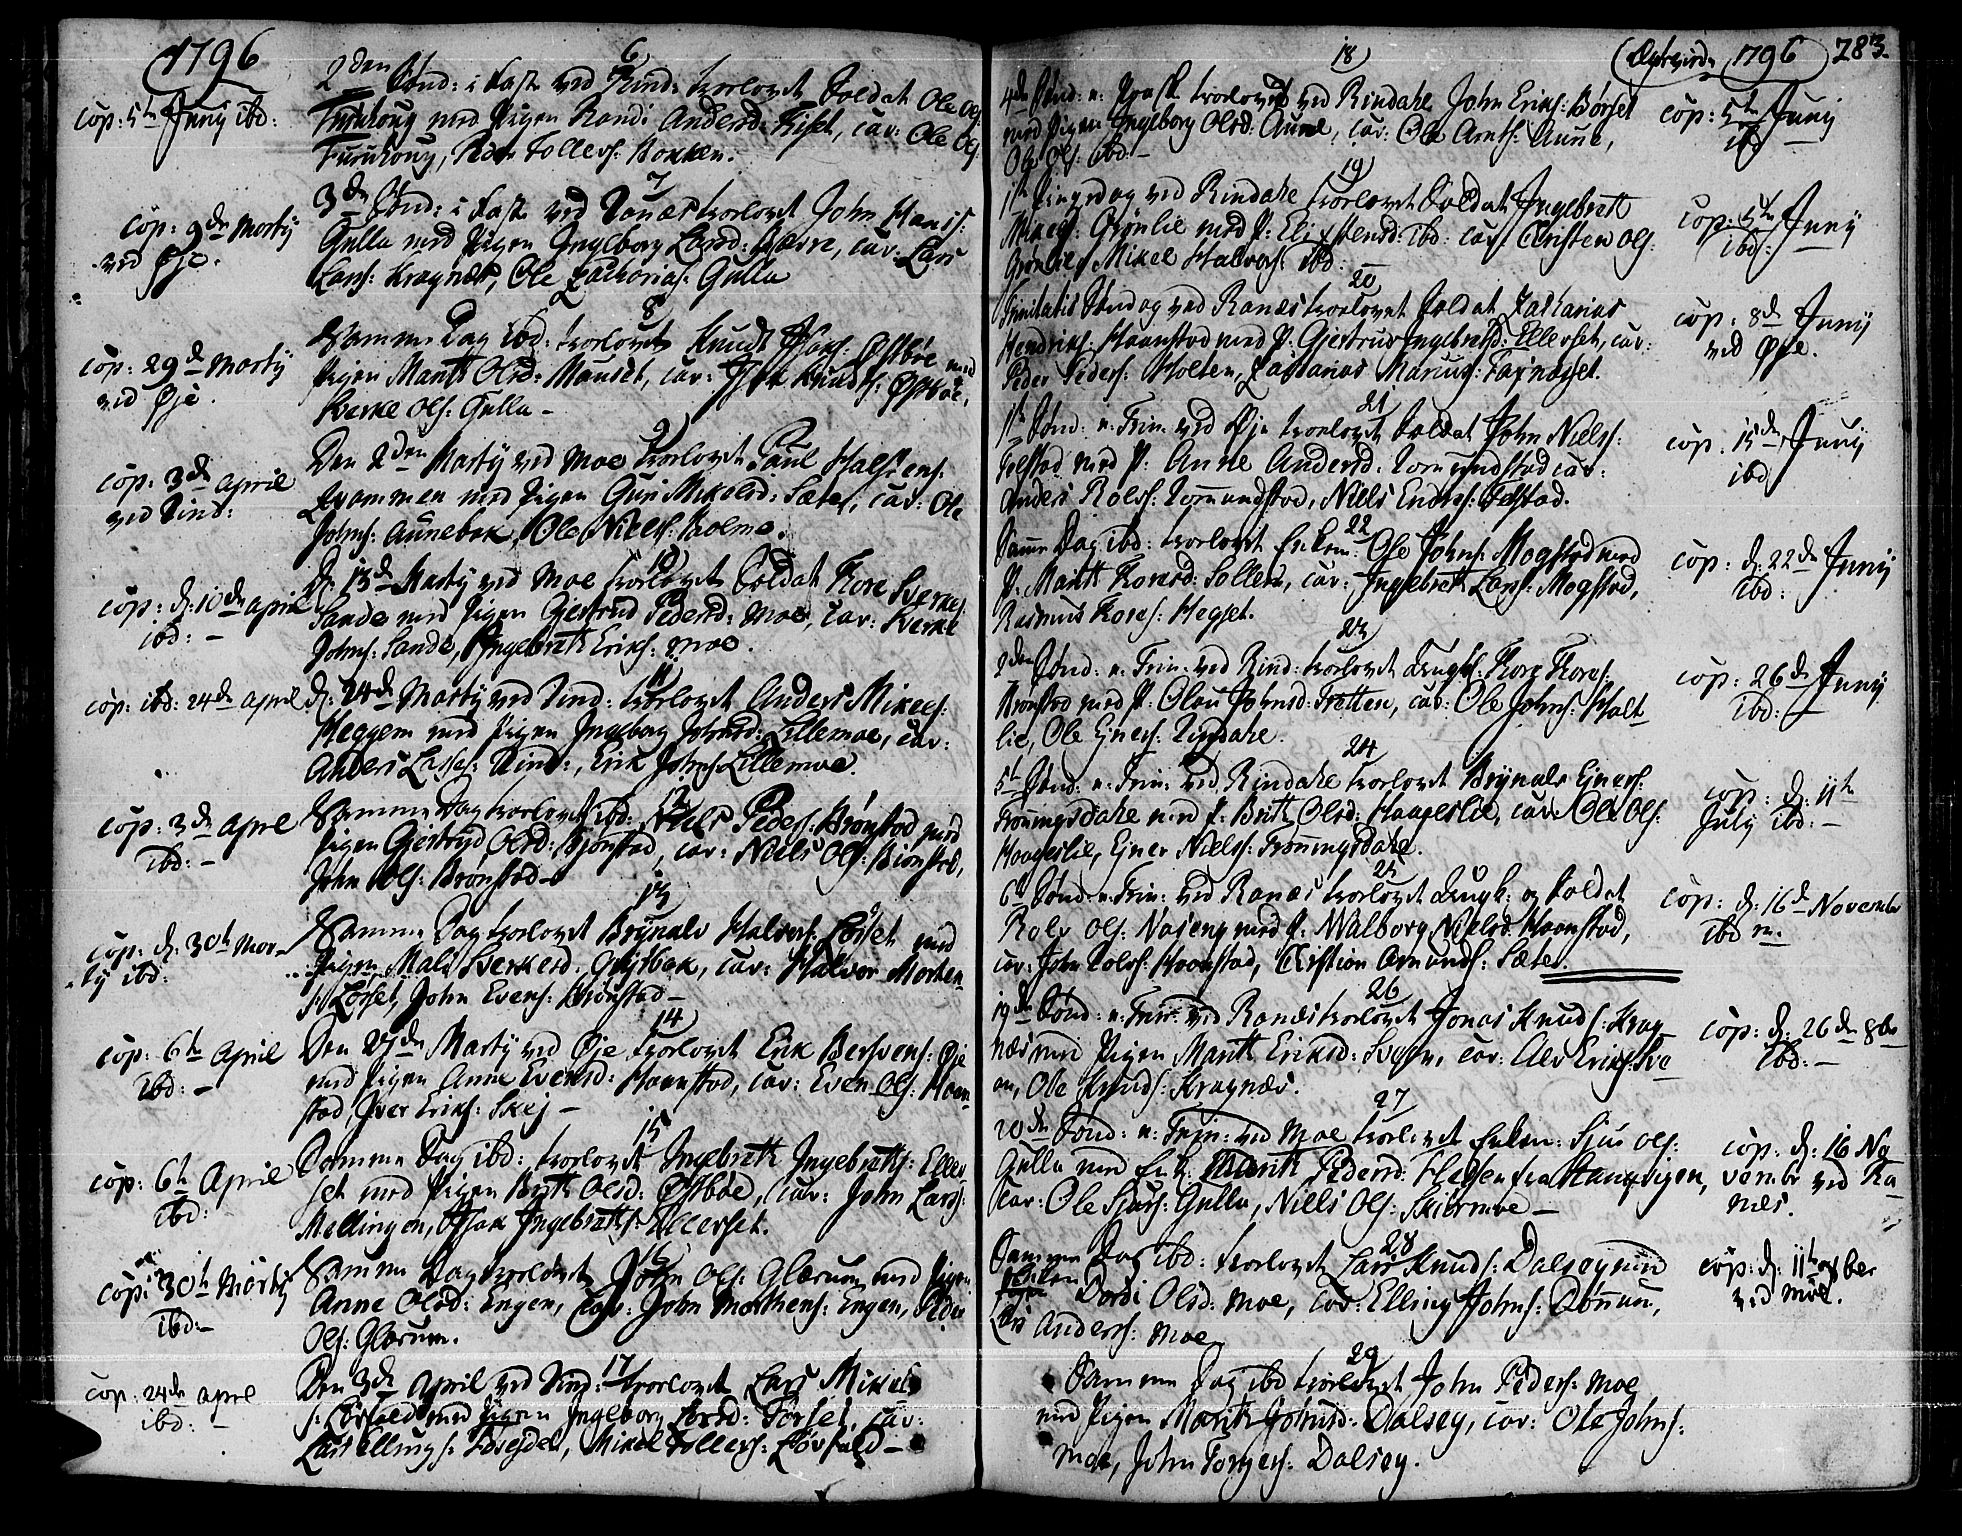 1796
6
2den Sønd: i Faste ved Rind: trorlovet Soldat Ole Ols:
Furuhoug med Pigen Randi Andersd: Fiset, cav: Ole Ols:
Furuhoug, Peder Tollefs: Bokken.
cop: 5te Junÿ ibd:
7
3de Sønd: i Faste ved Ranæs trorlovet John Hans:
Gulla med Pigen Ingeborg Larsd: cav: Lars
Lars: Kragnæs, Ole Zacharias: Gulla
cop: 9de Martÿ
ved Øje.
8
Samme Dag ibd: trorlovet Knud Østbøe med
Pigen Marit Olsd: Mauset, cav: Knuds: Østbøe,
Sverke Ols: Gulla –
cop: 29de Martÿ
ved Øje.
9
Den 2den Martÿ ved Moe trorlovet Paul Halstens:
Qvammen med Pigen Guri Mikelsd: Sæter, cav: Ole
Johns: Aunebak, Ole Niels: Holme.
cop: 3de April
ved Rind:
10
D: 13de Martÿ ved Moe trorlovet Soldat Tore Sverkes:
Sande med Pigen Gjertrud Pedersd: Moe, cav: Sverke
Johns: Sande, Ingebrigt Eriks: Moe.
cop: d: 10de April
ibd: –
11
D: 24de Martÿ ved Rind: trorlovet Anders Mikels:
Heggem med Pigen Ingeborg Johnsd: Lillemoe, cav:
Anders Lasses: Rind:, Erik Johns: Lillemoe.
cop: ibd: 24de April
12
Samme Dag trorlovet ibd: Niels Peders: Brønstad med
Pigen Gjertrud Olsd: Bjønstad, cav: Niels Ols: Bjønstad,
John Ols: Brønstad –
cop: 3de April
ibd: –
13
Samme Dag trorlovet Brÿnald Halvors: Lørset med
Pigen Mali Sverkesd: cav: Halvor Morten-
s: Lørset, John Evens: Brønstad –
cop: d: 30te Mar-
tÿ ibd:
14
Den 27de Martÿ ved Øje trorlovet Erik Bersvens: Øje
med Pigen Anne Evensd: Haanstad, cav: Even Ols: Haan-
stad, Iver Eriks: Skej –
cop: 6te April
ibd: –
15
Samme Dag ibd: trorlovet Ingebrigt Ingebrigts: Eller-
set med Pigen Brit Olsd: Østbøe, cav: John Lars:
Mellingen, Isak Ingebrigts: Ellerset.
cop: 6te April
ibd:
16
Samme Dag trorlovet John Ols: Glærum med Pigen
Anne Olsd: Engen, cav: John Mortens: Engen, Peder
Ols: Glærum.
cop: 30te Martÿ
ibd: –
17
Den 3de April ved Rind: trorlovet Lars Mikel-
s: Løsfald med Pigen Ingeborg Larsd: Tørset, cav:
Lars Ellings: Mikel Tollefs: Løsfald –
cop: 24de April
ibd: –
1796 283.
18
4de Sønd: e: Paask trorlovet ved Rindahl John Eriks: Børset
med Pigen Ingeborg Olsd: Aune, cav: Ole Arnts: Aune,
Ole Ols: ibd: –
cop: 5te Junÿ
ibd –
19
1ste Pingsdag ved Rindahl trorlovet Soldat Ingebrigt
Grønlie med P: Eli Stensd: ibd: cav: Christen Ols:
Grønlie, Mikel Halvors: ibd:
cop: 5te Junÿ
ibd: –
20
Trinitatis Søndag ved Ranæs trorlovet Soldat Zakarias
Hendriks: Haanstad med P: Gjertrud Ingebrigtsd: Ellerset, cav:
Peder Peders: Holten, Zakarias
cop: 8de Junÿ
ved Øje.
21
1ste Sønd: e: Trin: ved Øje trorlovet Soldat John Niels:
Telstad med P: Anne Andersd: Romundstad cav:
Anders Rolfs: Romundstad, Niels Endres: Telstad.
cop: 15de Junÿ
ibd
22
Samme Dag ibd: trorlovet Enkem: Ole Johns: Mogstad med
P: Marit Toresd: Solem, cav: Ingebrigt Lars: Mogstad,
Rasmus Tores: Hegset.
cop: d: 22de Junÿ
ibd:
23
2den Sønd: e: Trin: ved Rind: trorlovet Tore Tores:
Brønstad med P: Olou Johnsd: Tretten, cav: Ole Johns: Halt-
lie, Ole Ejners: Rindahl.
cop: 26de Junÿ
ibd: –
24
5te Sønd: e: Trin: ved Rindahl trorlovet Brÿnald Ejners:
Trøningsdahl med P: Brit Olsd: Haageslie, cav: Ole Ols:
Haageslie, Ejner Niels: Trøningsdahl.
cop: d: 11te
Julÿ ibd: –
25
6te Sønd: e: Trin: ved Ranæs trorlovet og Soldat
Rolv Ols: Nøjeng med P: Walborg Nielsd: Haanstad,
cav: John Rolfs: Haanstad, Christian Amunds: Sæter.
cop: d: 16de November
ibd
26
19de Sønd: e: Trin: ved Ranæs trorlovet Jonas Knuds: Krag-
næs med Pigen Marit Eriksd: Svean, cav: Alv Eriks: Sve-
an, Ole Knuds: Kragnæs.
cop: d: 26de 8br
ibd: –
27
20de Sønd: e: Trin: ved Moe trorlovet Enkem: Sjur Ols:
Gulla med Enk: Marit Pedersd: fra Stangvigen,
cav: Ole Sjurs: Gulla, Niels Ols: Skiermoe –
cop: d: 16 No-
vembr ved Ra-
næs.
28
Samme Dag ibd: trorlovet Lars Knuds: Dalsey med
Pigen Dordi Olsd: Moe, cav: Elling Johns:
Lars Anders: Moe
cop: d: 11te
ved Moe.
29
Samme Dag ibd trorlovet John Peders: Moe
med Pigen Marit Johnsd: Dalsey, cav: Ole Johns:
Moe, John Torgers: Dalsey.